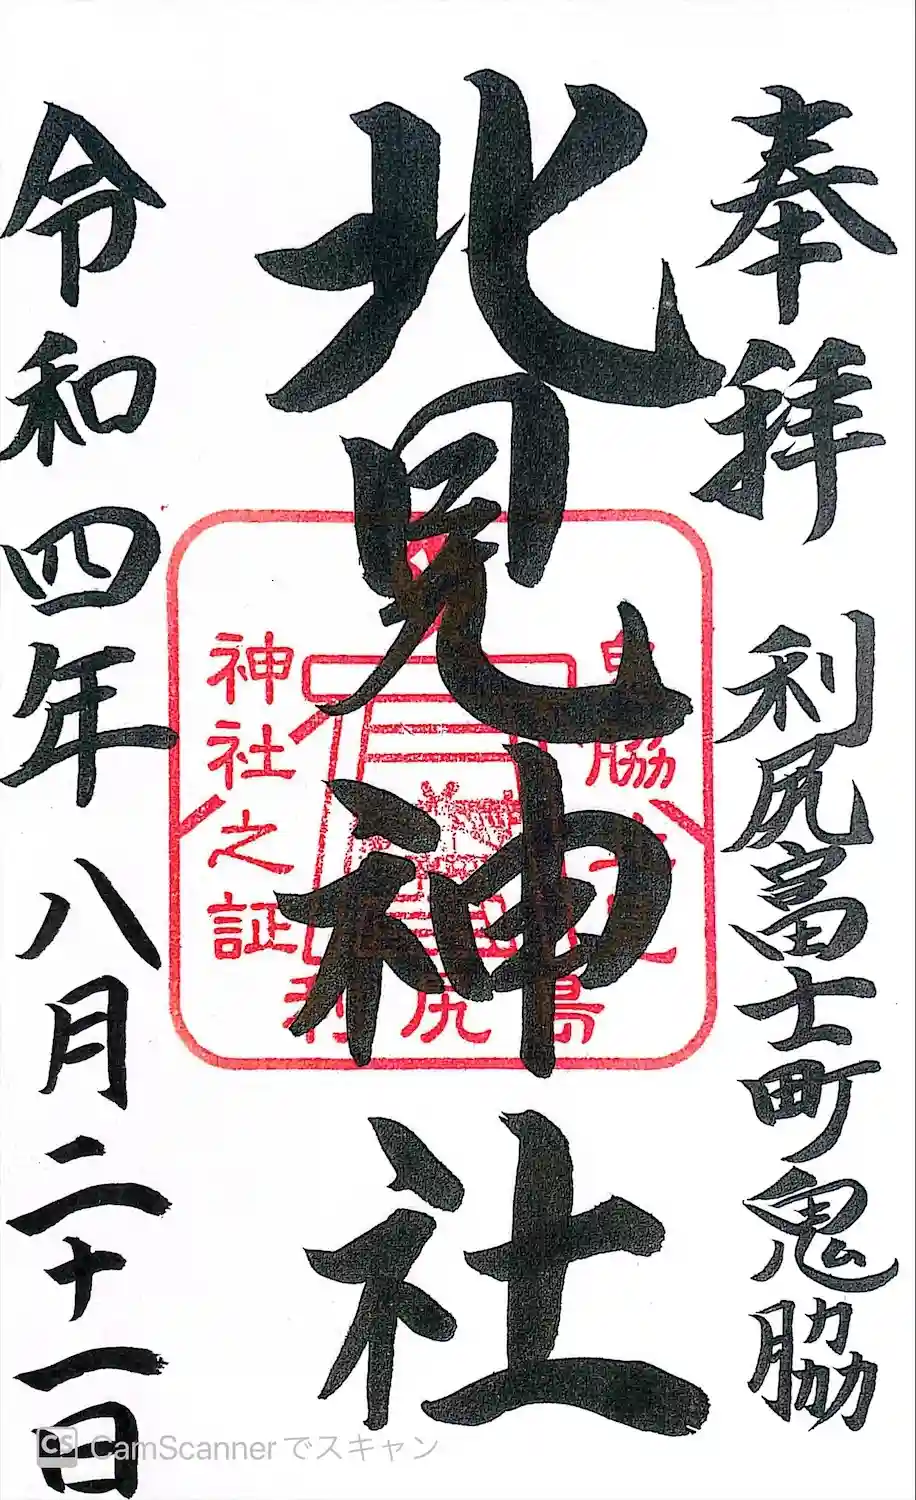 奉拝 利尻富士町鬼脇
北見神社
令和四年 八月二十一日
鬼脇北見
神社之証
利尻島
CS CamScannerでスキャン